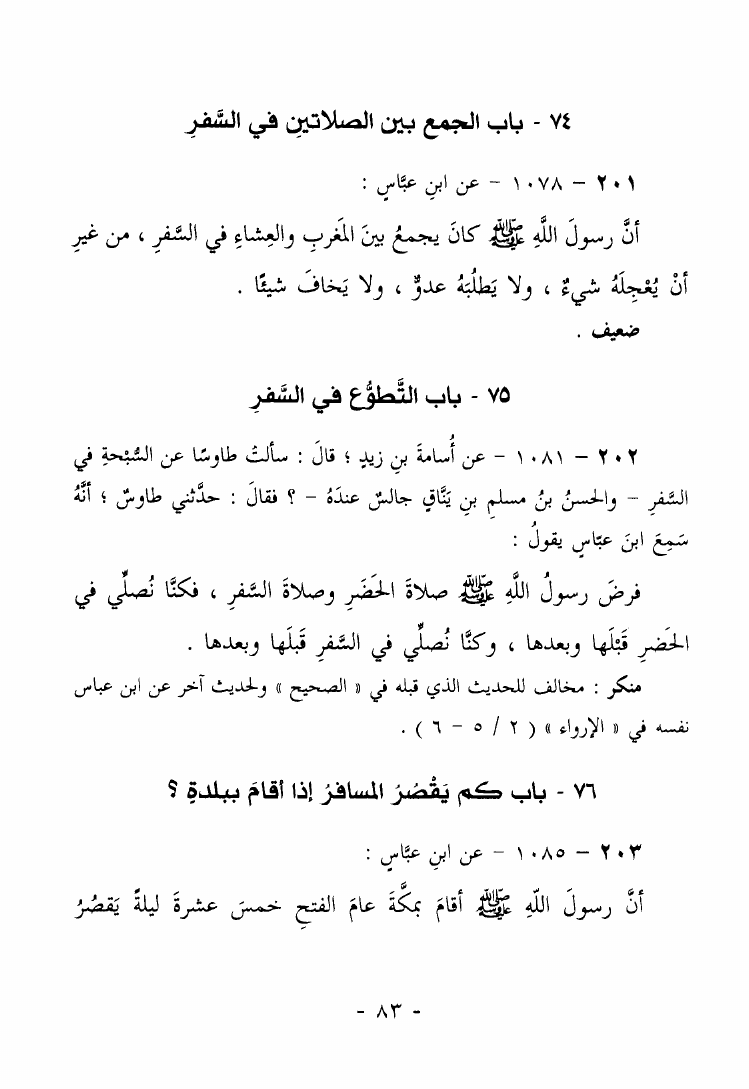 ٧٤ - باب الجمع بين الصلاتينِ في السَّفرِ
٢٠١ - ١٠٧٨ - عن ابنِ عبَّاسٍ :
أنَّ رسولَ اللَّهِ ﷺ كانَ يجمعُ بينَ المَغربِ والعِشاءِ في السَّفرِ ، من غيرِ
أنْ يُعْجِلَهُ شيءٌ ، ولا يَطلُبَهُ عدوٌّ ، ولا يَخافَ شيئًا .
ضعيف .
٧٥ - باب التَّطوُّع في السَّفرِ
٢٠٢ - ١٠٨١ - عن أُسامةَ بنِ زيدٍ ؛ قالَ : سألتُ طاوسًا عن السُّبْحةِ في
السَّفرِ - والحسنُ بنُ مسلمِ بنِ يَنَّاقٍ جالسٌ عندَهُ - ؟ فقالَ : حدَّثني طاوسٌ ؛ أنَّهُ
سَمِعَ ابنَ عبّاسٍ يقولُ :
فرضَ رسولُ اللَّهِ ﷺ صلاةَ الحَضَرِ وصلاةَ السَّفرِ ، فكنَّا نُصلِّي في
الحَضرِ قَبْلَها وبعدها ، وكنَّا نُصلِّي في السَّفرِ قَبلَها وبعدها .
منكر : مخالف للحديث الذي قبله في « الصحيح » ولحديث آخر عن ابن عباس
نفسه في « الإرواء » ( ٢ / ٥ - ٦ ) .
٧٦ - باب كم يَقْصُرُ المسافرُ إذا أقامَ ببلدةٍ ؟
٢٠٣ - ١٠٨٥ - عن ابنِ عبَّاسٍ :
أنَّ رسولَ اللّهِ ﷺ أقامَ بمكَّةَ عامَ الفتحِ خمسَ عشرةَ ليلةً يَقصُرُ
- ٨٣ -